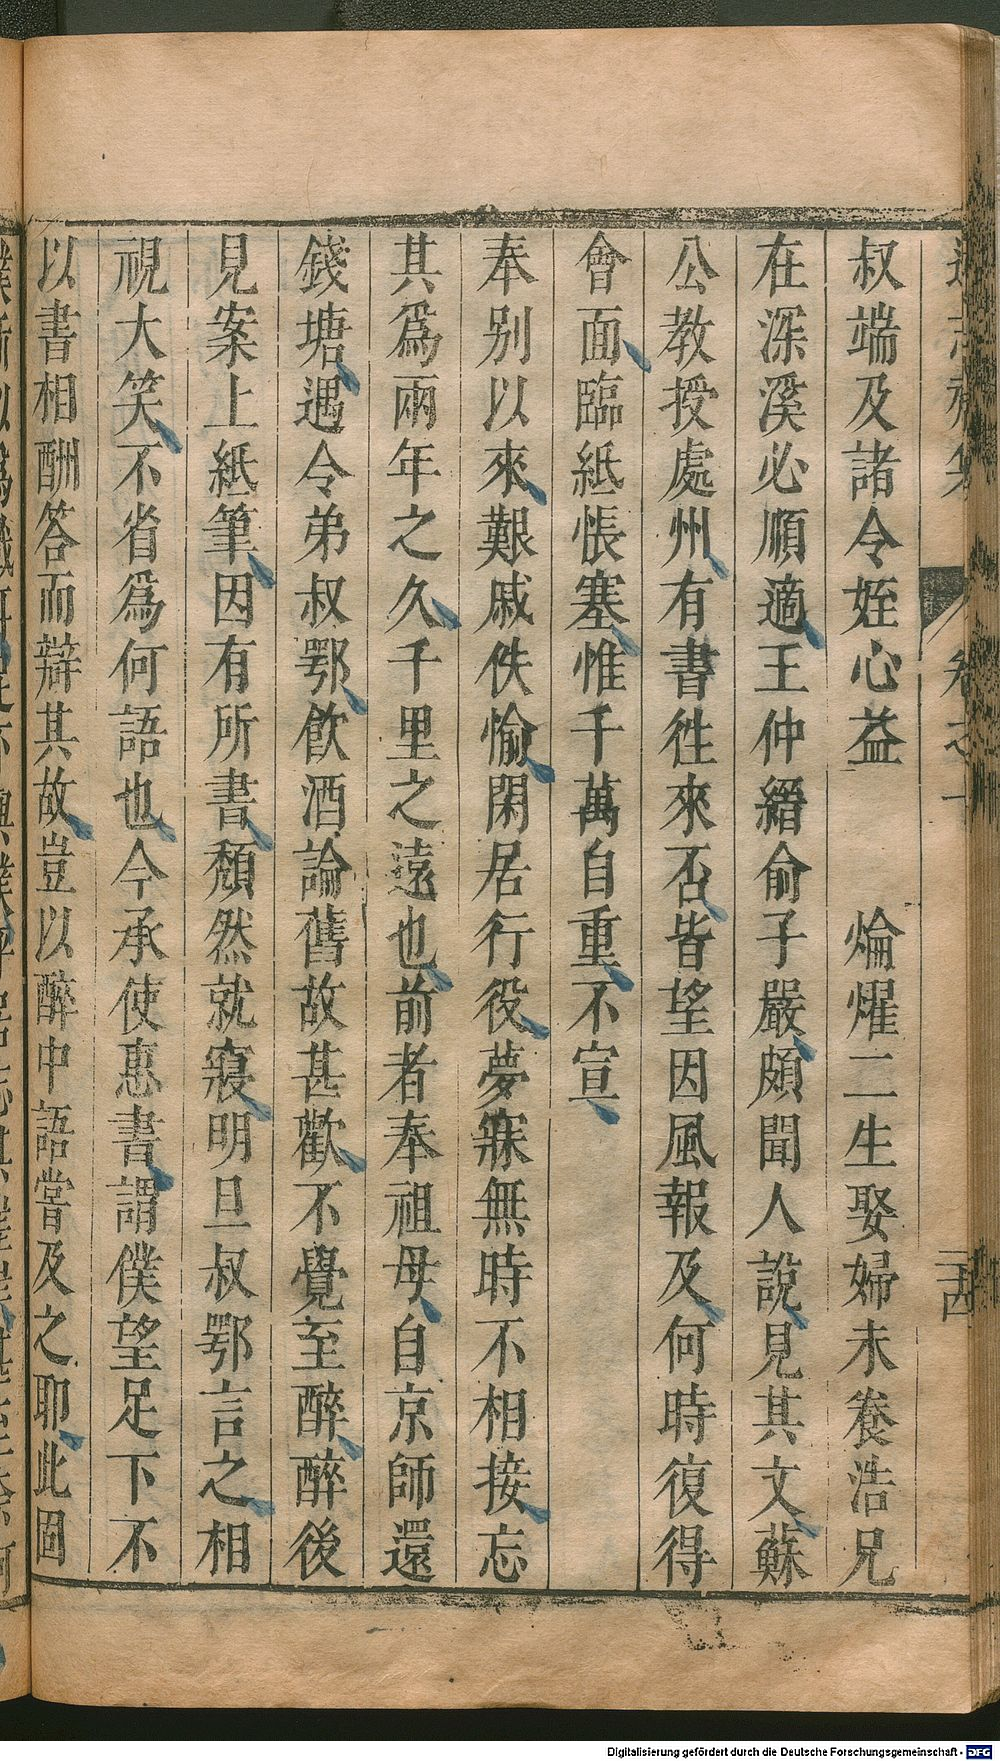 叔端及諸令姪心益　　焴燿二生娶婦未養浩兄
在深溪必順適王仲縉俞子嚴頗聞人說見其文蘇
公教授處州有書徃來否皆望因風報及何時復得
會面臨紙悵塞惟千萬自重不宣
奉别以來艱戚佚愉閑居行役夢寐無時不相接忘
其爲兩年之久千里之遠也前者奉祖母自京師還
錢塘遇令弟叔鄂飲酒論舊故甚歡不覺至醉醉後
見案上紙筆因有所書頹然就寢明旦叔鄂言之相
視大笑不省爲何語也今承使惠書謂僕望足下不
以書相酬答而辯其故豈以醉中語嘗及之耶此固
Digitalisierung gefördert durch die Deutsche Forschungsgemeinschaft - DFG